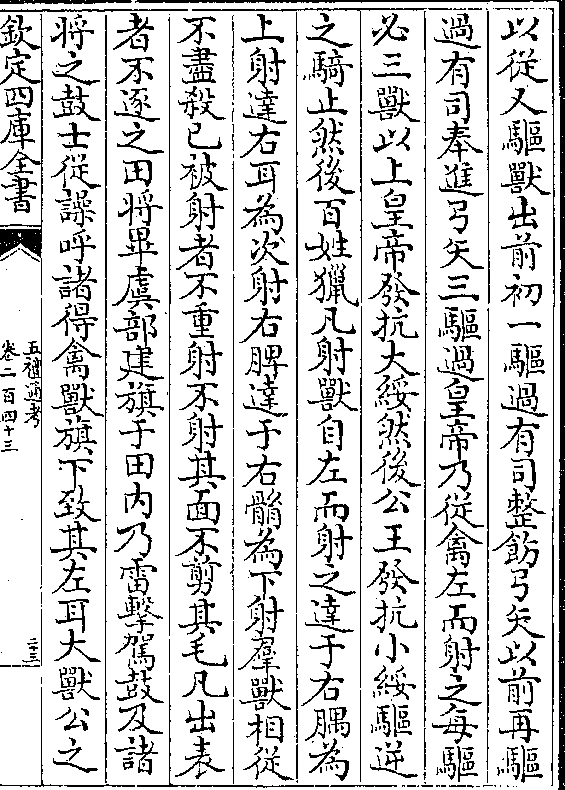 以從又驅獸出前初一驅過有司整飭弓矢以前再驅
過有司奉進弓矢三驅過皇帝乃從禽左而射之每驅
必三獸以上皇帝發抗大綏然後公王發抗小綏驅逆
之騎止然後百姓獵凡射獸自左而射之達于右腢為
上射達右耳為次射右髀達于右䯚為下射羣獸相從
不盡殺已被射者不重射不射其面不剪其毛凡出表
者不逐之田將畢虞部建旗于田内乃雷擊駕鼓及諸
將之鼓士從譟呼諸得禽獸旗下致其左耳大獸公之
欽定四庫全書
五禮通考
卷二百四十三
二十三